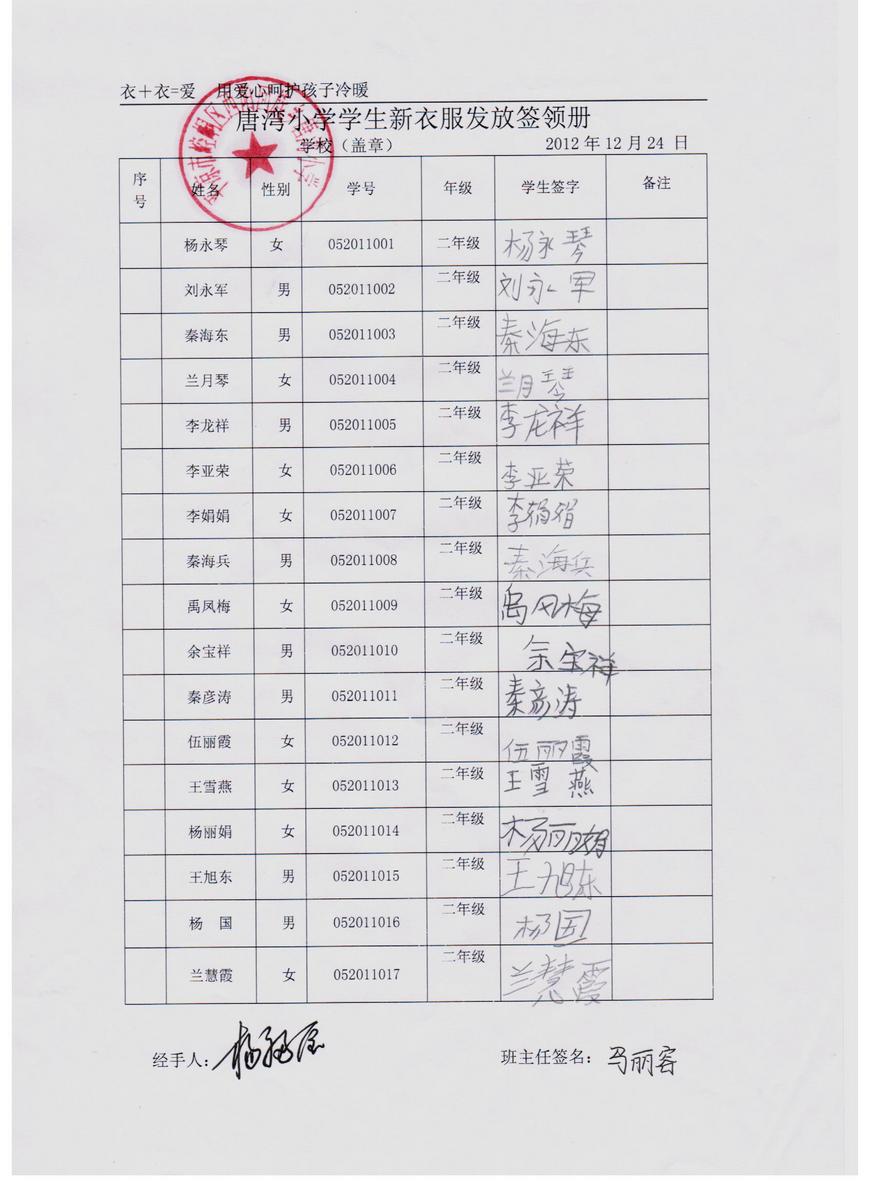 衣＋衣=爱 用爱心呵护孩子冷暖
唐湾小学学生新衣服发放签领册
学校（盖章） 2012 年 12 月 24 日
序号 姓名 性别 学号 年级 学生签字 备注
杨永琴 女 052011001 二年级 杨永琴
刘永军 男 052011002 二年级 刘永军
秦海东 男 052011003 二年级 秦海东
兰月琴 女 052011004 二年级 兰月琴
李龙祥 男 052011005 二年级 李龙祥
李亚荣 女 052011006 二年级 李亚荣
李娟娟 女 052011007 二年级 李娟娟
秦海兵 男 052011008 二年级 秦海兵
禹凤梅 女 052011009 二年级 禹凤梅
余宝祥 男 052011010 二年级 余宝祥
秦彦涛 男 052011011 二年级 秦彦涛
伍丽霞 女 052011012 二年级 伍丽霞
王雪燕 女 052011013 二年级 王雪燕
杨丽娟 女 052011014 二年级 杨丽娟
王旭东 男 052011015 二年级 王旭东
杨 国 男 052011016 二年级 杨国
兰慧霞 女 052011017 二年级 兰慧霞
经手人： 班主任签名：马丽容